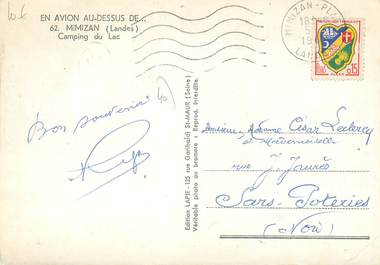 10 €
EN AVION AU-DESSUS DE...
62. MIMIZAN (Landes)
Camping du Lac
MIMIZAN-PL
18
19
LAN
0,15
Bon souvenir
Edition LAPIE - 125 rue Garibaldi St-MAUR (Seine)
Véritable photo au bromure - Reprod. interdite.
Monsieur Madame César Leclercq
et Mademoiselle
rue J. Jaurès
Sars-Poteries
(Nord)